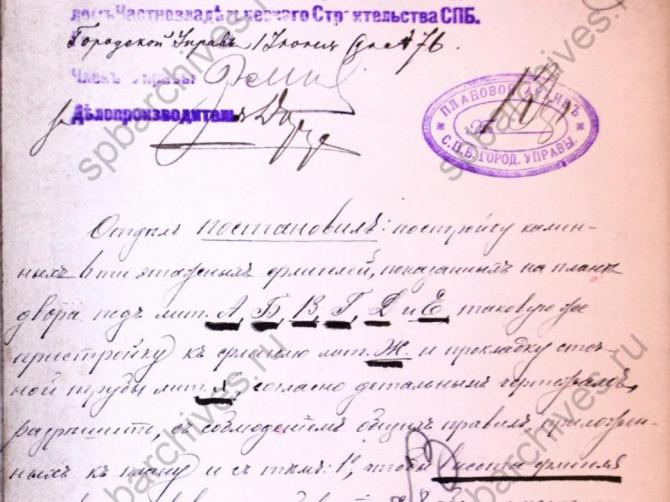 Частновладѣльческаго Строительства СПБ.
Городской Управѣ 1 Іюня
Членъ Управы
Дѣлопроизводитель
ПЛАНОВОЙ АРХИВЪ
С.П.Б. ГОРОД. УПРАВЫ.
Отдѣлъ постановилъ: постройку камен-
ныхъ 6ти этажныхъ флигелей, показанныхъ на планѣ
двора подъ лит. А, Б, В, Г, Д и Е, таковую же
пристройку къ флигелю лит. Ж. и прокладку сточ-
ной трубы лит. согласно детальнымъ чертежамъ,
разрѣшить, съ соблюденіемъ общихъ правилъ, приложен-
ныхъ къ плану и съ тѣмъ: 1, чтобы высота флигеля
spbarchives.ru
spbarchives.ru
spbarchives.ru
spbarchives.ru